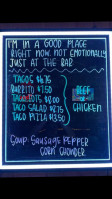 I'M IN A GOOD PLACE
RIGHT NOW. NOT EMOTIONALLY
JUST AT THE BAR
TACOS
BURRITO 7.50
TACO 8.00
TACO SALAD
TACO PIZZA 13.50
BEEF
OR
CHICKEN
Soup: SAUSAGE PEPPER
CORN CHOWDER